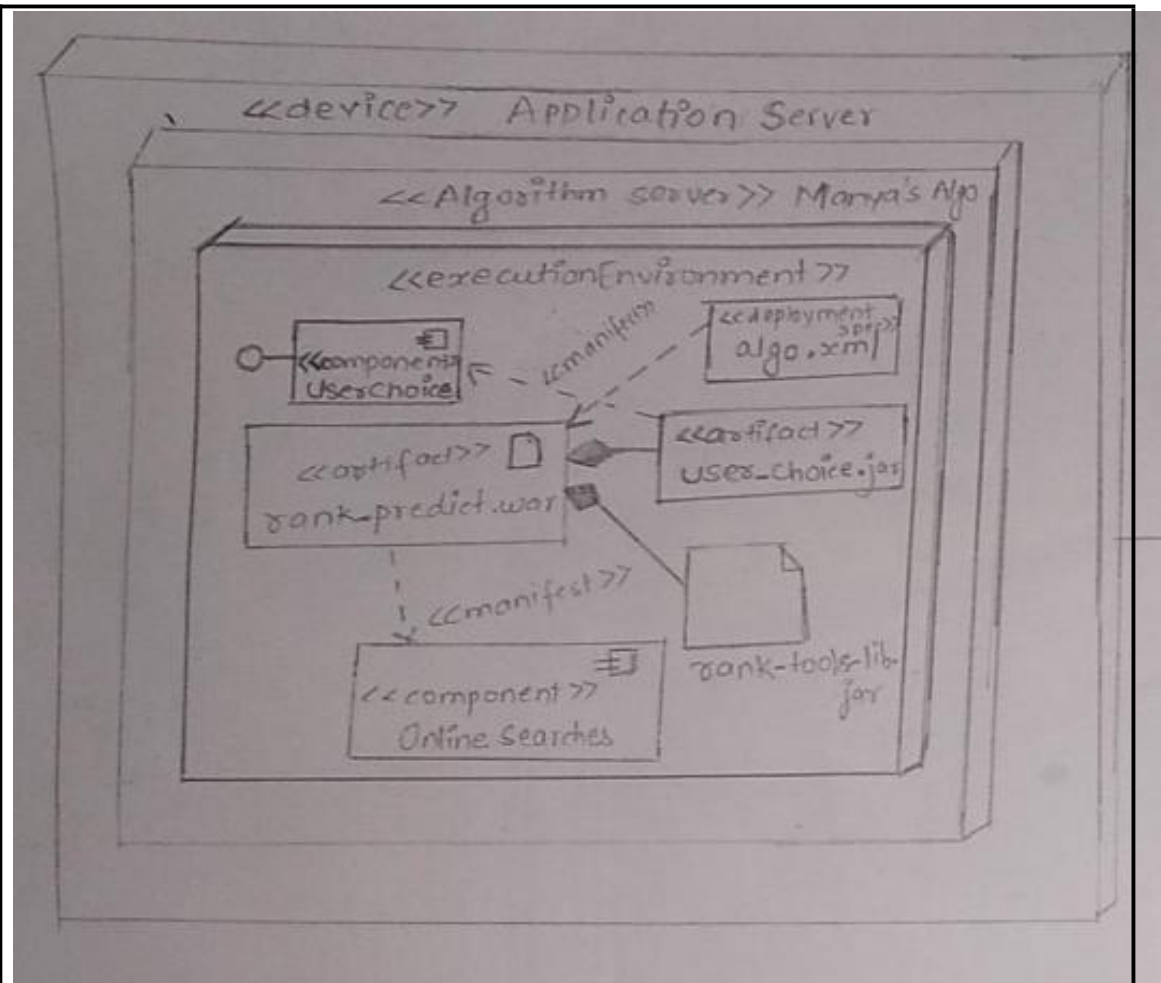 <<device>> Application Server
<<Algorithm server>> Manya's Algo
<<executionEnvironment>>
<<component>>
UserChoice
<<deployment
spec>>
algo.xml
<<artifact>>
rank_predict.war
<<artifact>>
user_choice.jar
<<manifest>>
<<component>>
Online Searches
rank-tools-lib.
jar